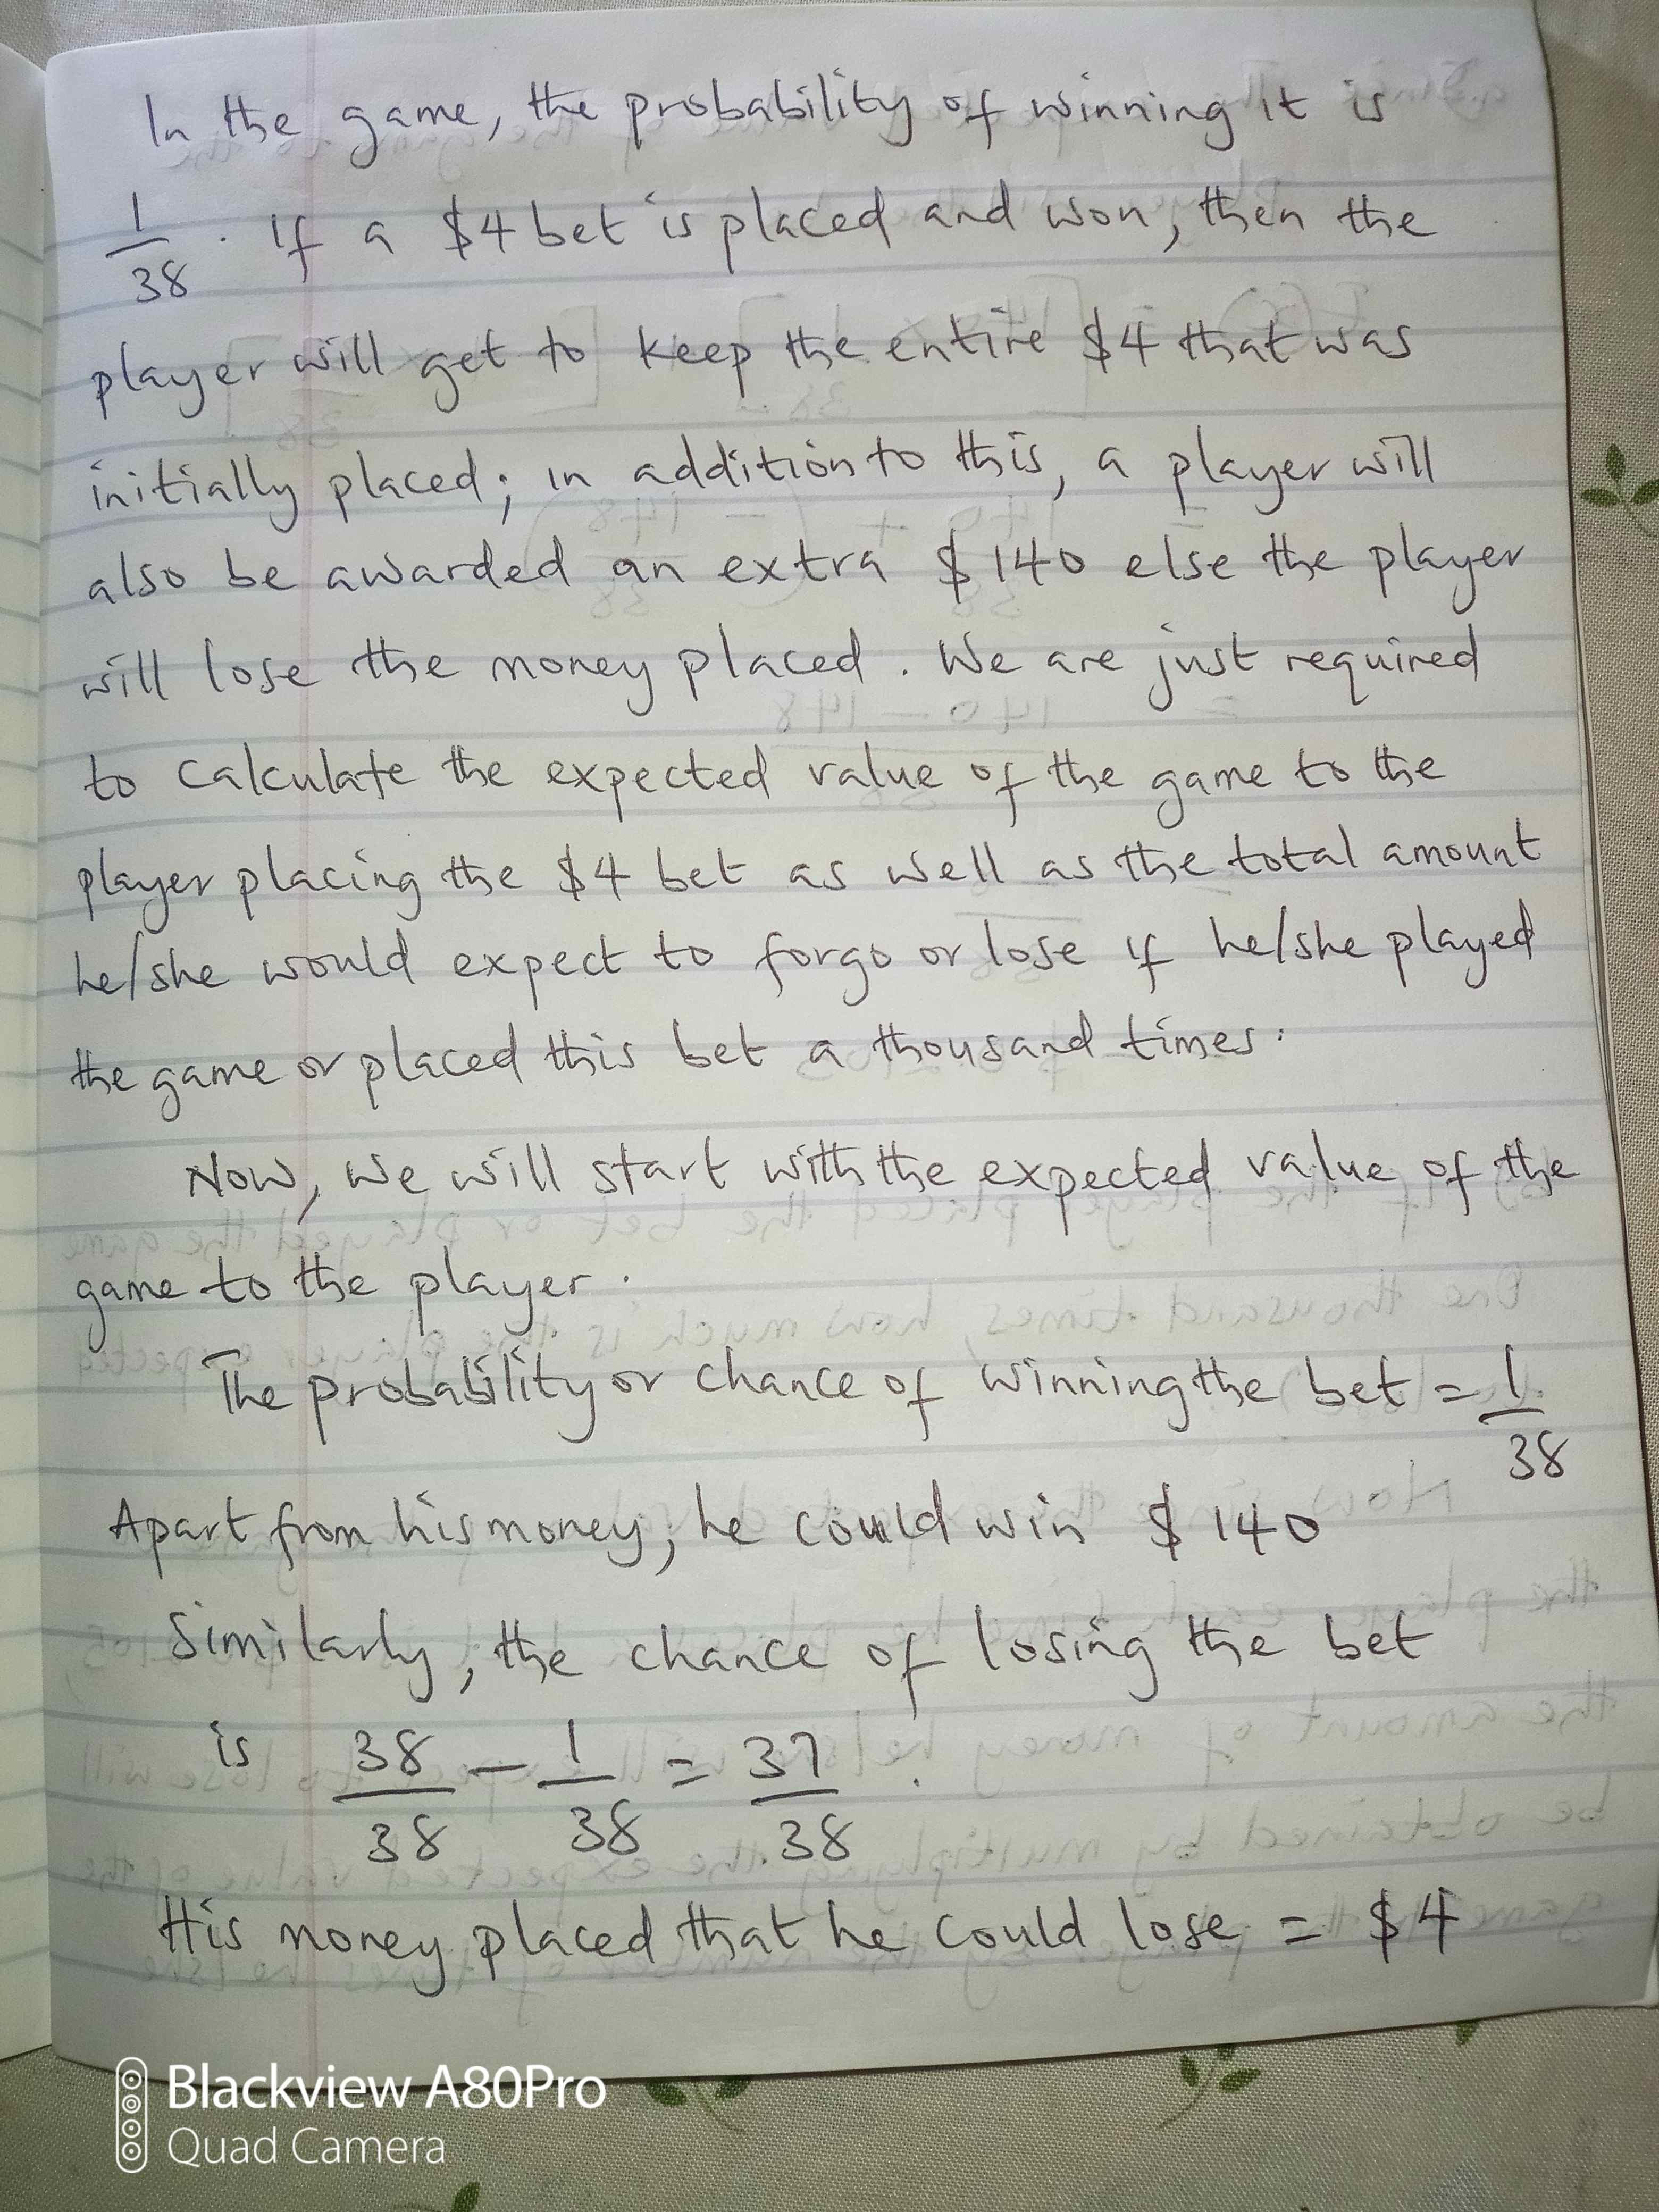 In the game, the probability of winning it is
1/38. If a $4 bet is placed and won, then the
player will get to keep the entire $4 that was
initially placed; in addition to this, a player will
also be awarded an extra $140 else the player
will lose the money placed. We are just required
to calculate the expected value of the game to the
player placing the $4 bet as well as the total amount
he/she would expect to forgo or lose if he/she played
the game or placed this bet a thousand times.
Now, we will start with the expected value of the
game to the player.
The probability or chance of winning the bet = 1/38
Apart from his money, he could win $140
Similarly, the chance of losing the bet
is 38/38 - 1/38 = 37/38.
His money placed that he could lose = $4
Blackview A80Pro
Quad Camera